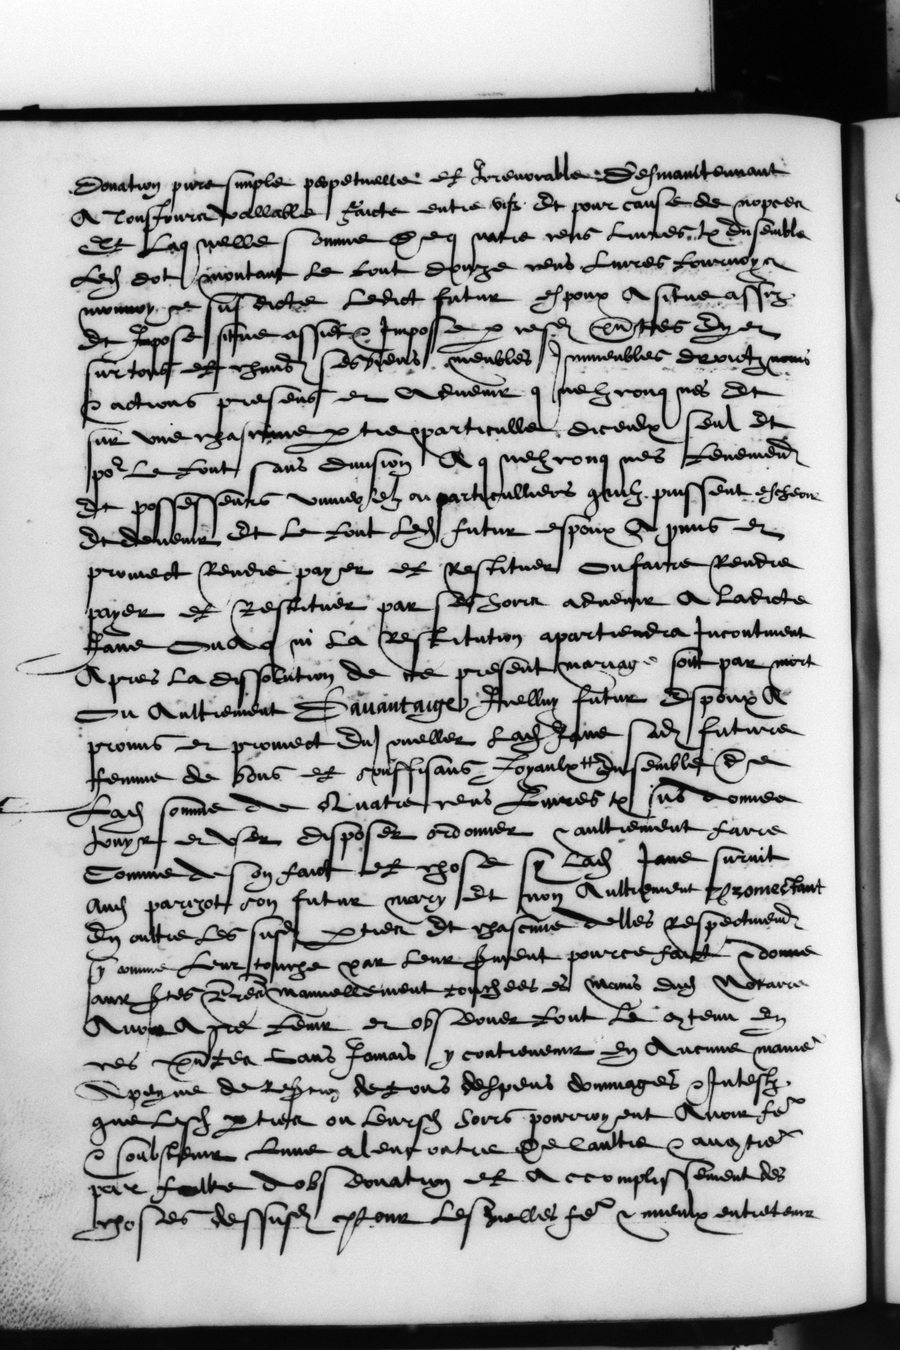 Donation pure simple perpetuelle et Irrevocable Desmaintenant
A Tousiours vallable faicte entre vifz et pour cause de nopces
Et Laquelle somme de quatre cens Livres tz Ensemble
Led dot montant Le tout douze cens Livres tournoys
monnoye susdicte Ledict futur espoux A situe assiz
et Impose situe assiet & Impose p ces presentes
sur tous et chacuns ses biens meubles Immeubles droictz noms
& actions presens et Advenir quelzconques et
sur une chascune ptie & particulle diceulx seul et
po^r Le tout sans division A quelzconques tenemens
et possesseurs universelz ou particulliers quilz puissent escheoir
et devenir et Le tout Led futur espoux A pmis et
promect Rendre payer et Restituer Ou faire Rendre
payer et Restituer par ses hoirs advenir A Ladicte
Jane Ou A qui La Restitution apartiendra Incontinent
Apres La dissolution de ce present mariage soit par mort
Ou Aultrement Davantaige Icelluy futur Espoux A
promis et promect En joueller Lad Jane sad future
femme de bons et souffisans Joyaulx Ensemble de
Lad somme de Quatre cens Livres tz sus donnee
Jouyr et User disposer ordonner & aultrement faire
Comme de son faict et chose sy Lad Jane survit
Aud parizot son futur mary et non Aultrement Promectant
En oultre Les susd pties et chascune delles Respectivement
sy comme Leur touche par Leur serment pource faict & donne
aux stes manuellement touchees es mains dud Notaire
Avoir A gre tenir et observer tout Le contenu En
ces pntes sans Jamais y contrevenir En Aucune manie^r
A peyne de de tous despens dommages & Interestz
que Lesd pties ou Leursd hoirs pourroyent Avoir fe^r
& soubstenir Lune a lencontre de Laultre &
par faulte dobservation et Accomplissement des
choses dessusd Pour Lesquelles fe^r & mieulx entretenir